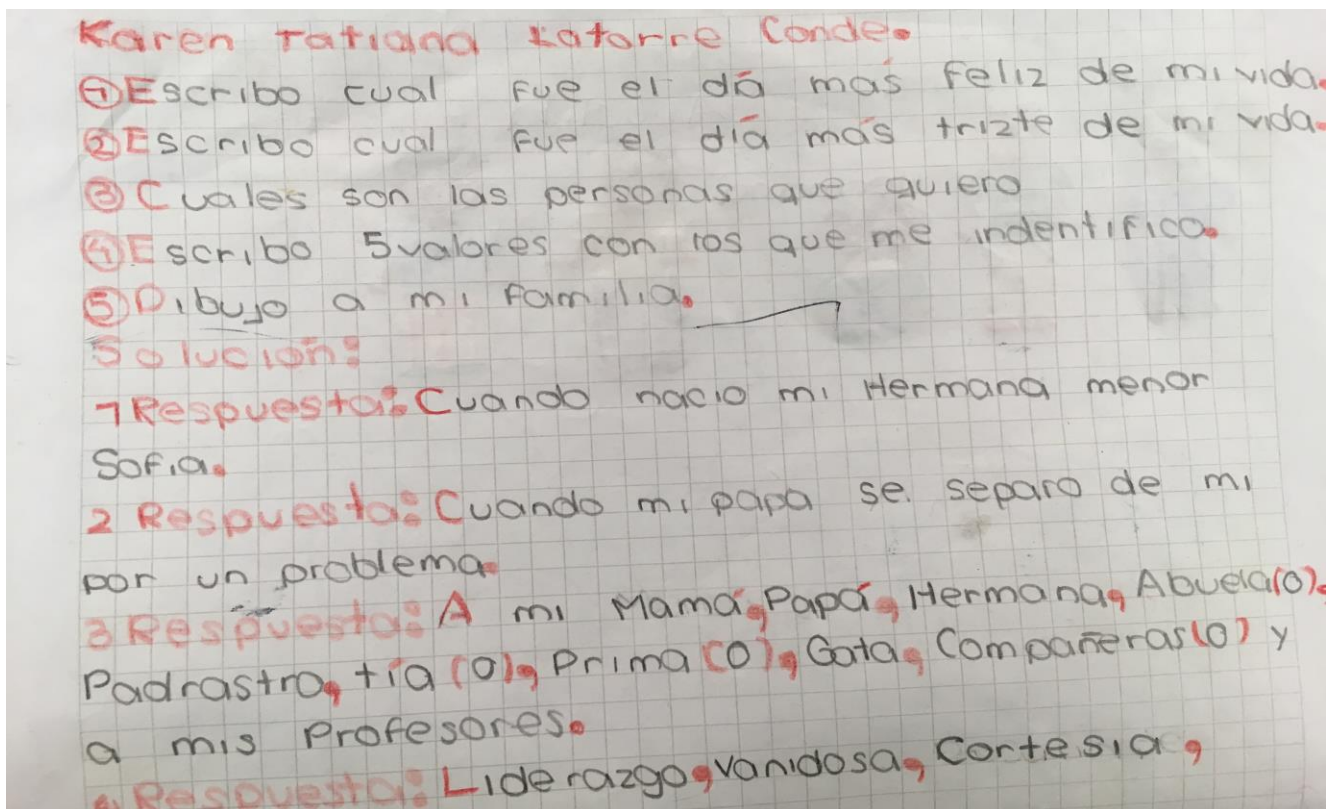 Karen Tatiana Latorre Conde.
①Escribo cual fue el día mas feliz de mi vida.
②Escribo cual fue el día más trizte de mi vida.
③Cuales son las personas que quiero
④Escribo 5 valores con los que me indentifico.
⑤Dibujo a mi familia.
Solución:
1 Respuesta: Cuando nacio mi Hermana menor
Sofia.
2 Respuesta: Cuando mi papa se separo de mi
por un problema.
3 Respuesta: A mi Mamá, Papá, Hermana, Abuela(o),
Padrastro, tía(o), Prima(o), Gata, Compañeras(o) y
a mis Profesores.
4 Respuesta: Liderazgo, vanidosa, Cortesia,